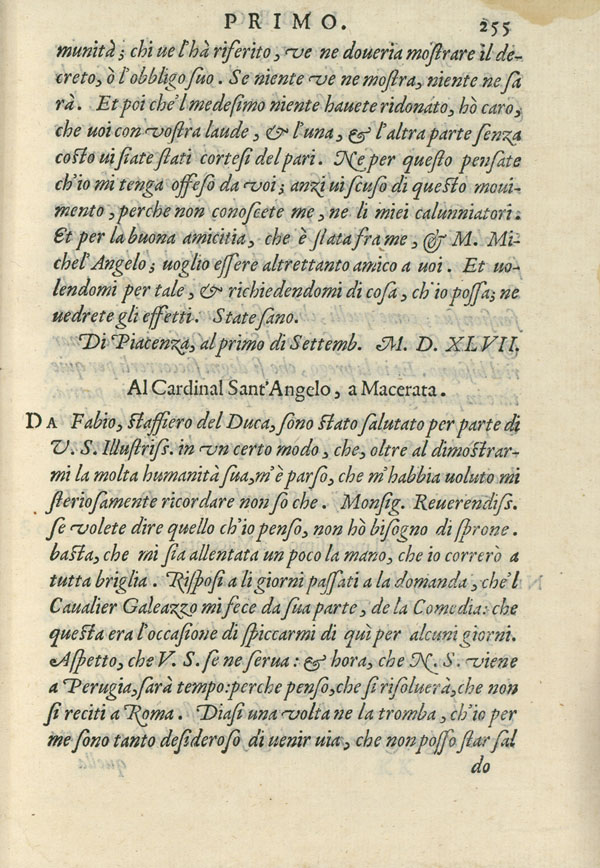 PRIMO. 255
munità; chi ue l'hà riferito, ve ne doueria mostrare il de-
creto, ò l'obbligo suo. Se niente ve ne mostra, niente ne sa
rà. Et poi che'l medesimo niente hauete ridonato, hò caro,
che uoi con vostra laude, & l'una, & l'altra parte senza
costo ui siate stati cortesi del pari. Ne per questo pensate
ch'io mi tenga offeso da voi; anzi ui scuso di questo moui-
mento, perche non conoscete me, ne li miei calunniatori.
Et per la buona amicitia, che è stata fra me, & M. Mi-
chel'Angelo; uoglio essere altrettanto amico a uoi. Et uo-
lendomi per tale, & richiedendomi di cosa, ch'io possa; ne
uedrete gli effetti. State sano.
Di Piacenza, al primo di Settemb. M. D. XLVII.
Al Cardinal Sant'Angelo, a Macerata.
DA Fabio, staffiero del Duca, sono stato salutato per parte di
V. S. Illustriss. in vn certo modo, che, oltre al dimostrar-
mi la molta humanità sua, m'è parso, che m'habbia uoluto mi
steriosamente ricordare non so che. Monsig. Reuerendiss.
se volete dire quello ch'io penso, non hò bisogno di sprone.
basta, che mi sia allentata un poco la mano, che io correrò a
tutta briglia. Risposi a li giorni passati a la domanda, che'l
Caualier Galeazzo mi fece da sua parte, de la Comedia: che
questa era l'occasione di spiccarmi di quì per alcuni giorni.
Aspetto, che V. S. se ne serua: & hora, che N. S. viene
a Perugia, sarà tempo: perche penso, che si risoluerà, che non
si reciti a Roma. Diasi una volta ne la tromba, ch'io per
me sono tanto desideroso di uenir uia, che non posso star sal
do